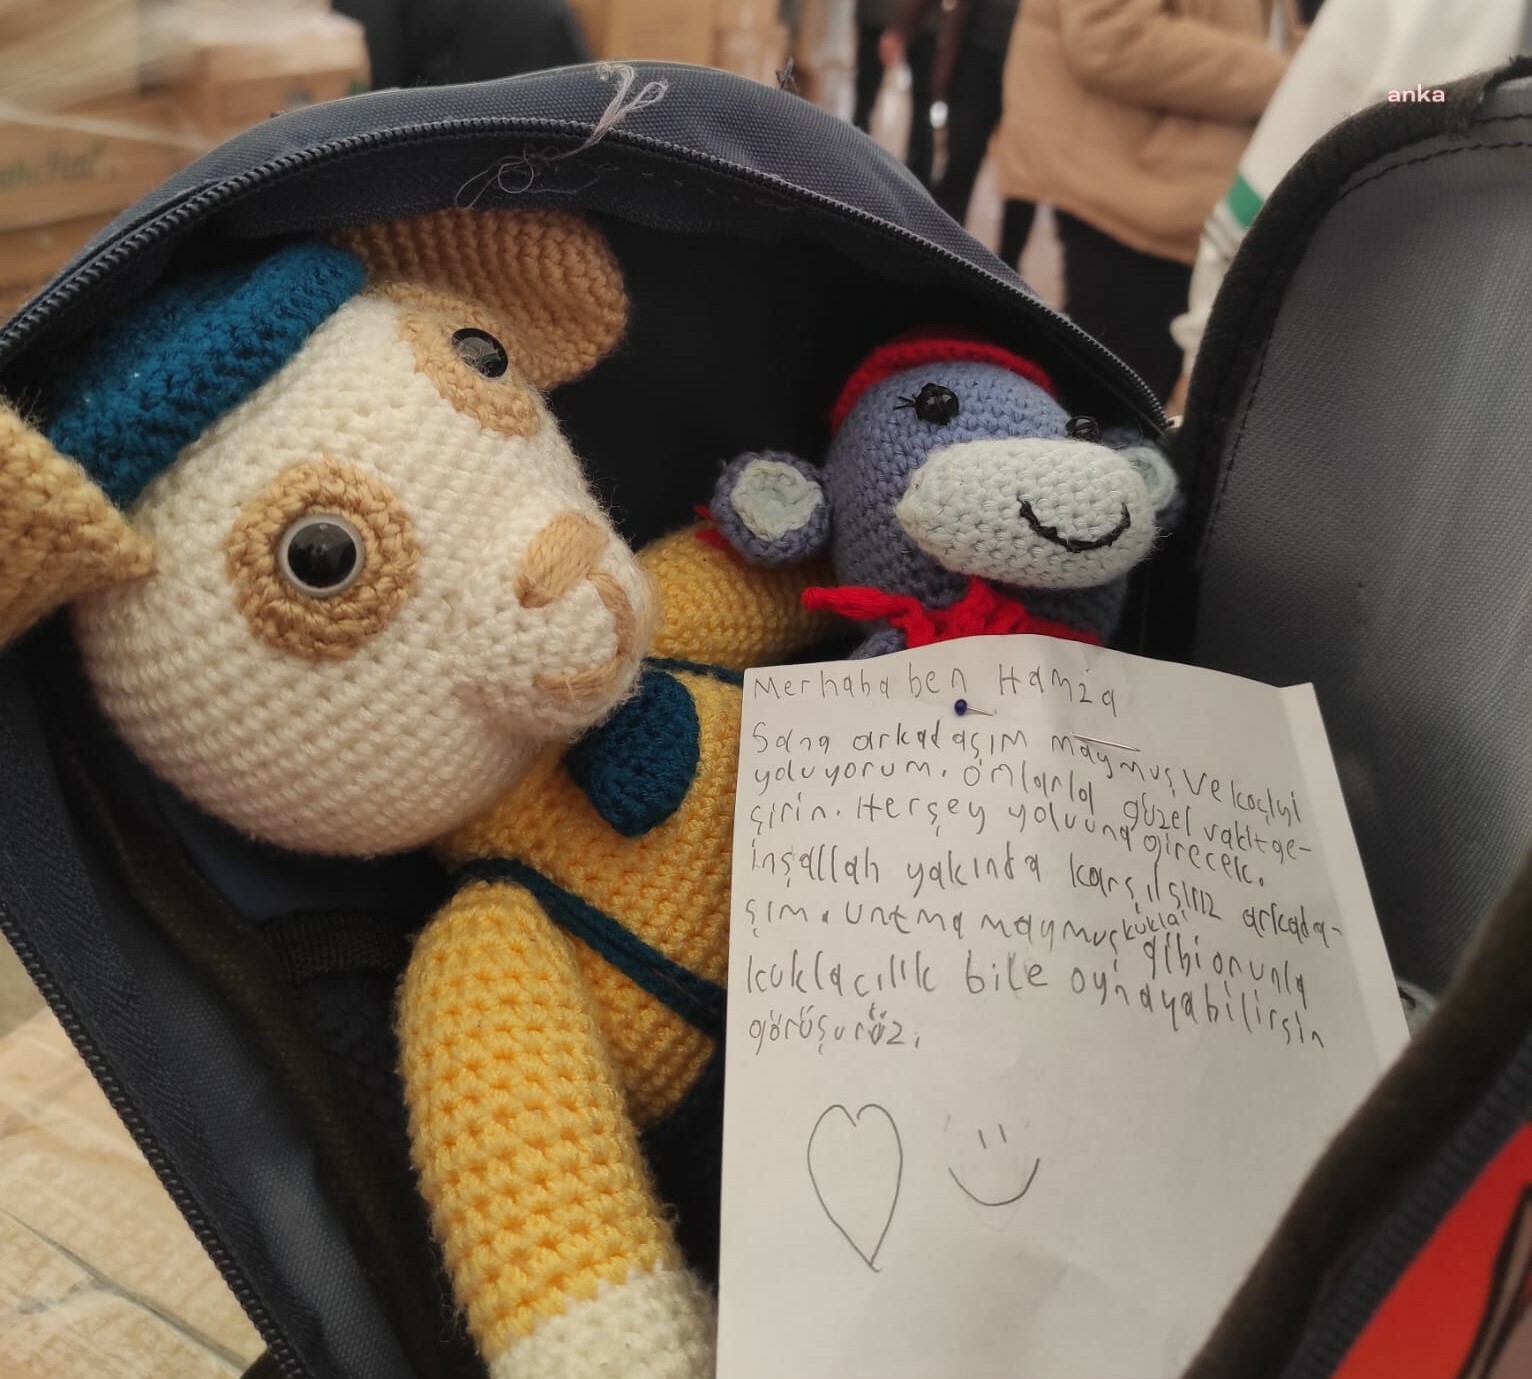 anka
Merhaba ben Hamza
Sana arkadaşım maymuş ve koçiyi
yoluyorum. Onlarla güzel vakit ge-
şirin. Herşey yoluuna girecek.
inşallah yakında karşılşırız arkada-
şım. Untma maymuş kukla gibi onunla
kuklacılık bile oynayabilirsin
görüşürüz.